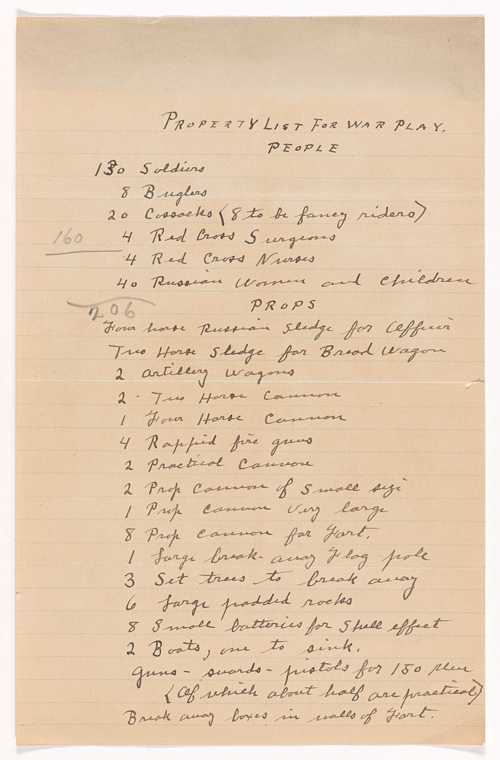 PROPERTY LIST FOR WAR PLAY.
PEOPLE
130 Soldiers
8 Buglers
20 Cossacks (8 to be fancy riders)
160
4 Red Cross Surgeons
4 Red Cross Nurses
40 Russian Women and Children
206
PROPS
Four horse Russian Sledge for Officer
Two Horse Sledge for Bread Wagon
2 Artillery Wagons
2 - Two Horse Cannon
1 Four Horse Cannon
4 Rappid fire guns
2 Practical Cannon
2 Prop Cannon of Small size
1 Prop Cannon Very large
8 Prop Cannon for Fort.
1 Large break-away Flag pole
3 Set trees to break away
6 Large padded rocks
8 Small batteries for Shell effect
2 Boats, one to sink.
Guns - swords - pistols for 150 Men
(Of which about half are practical)
Break away boxes in walls of Fort.